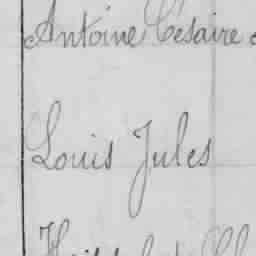 Antoine Césaire
Louis Jules